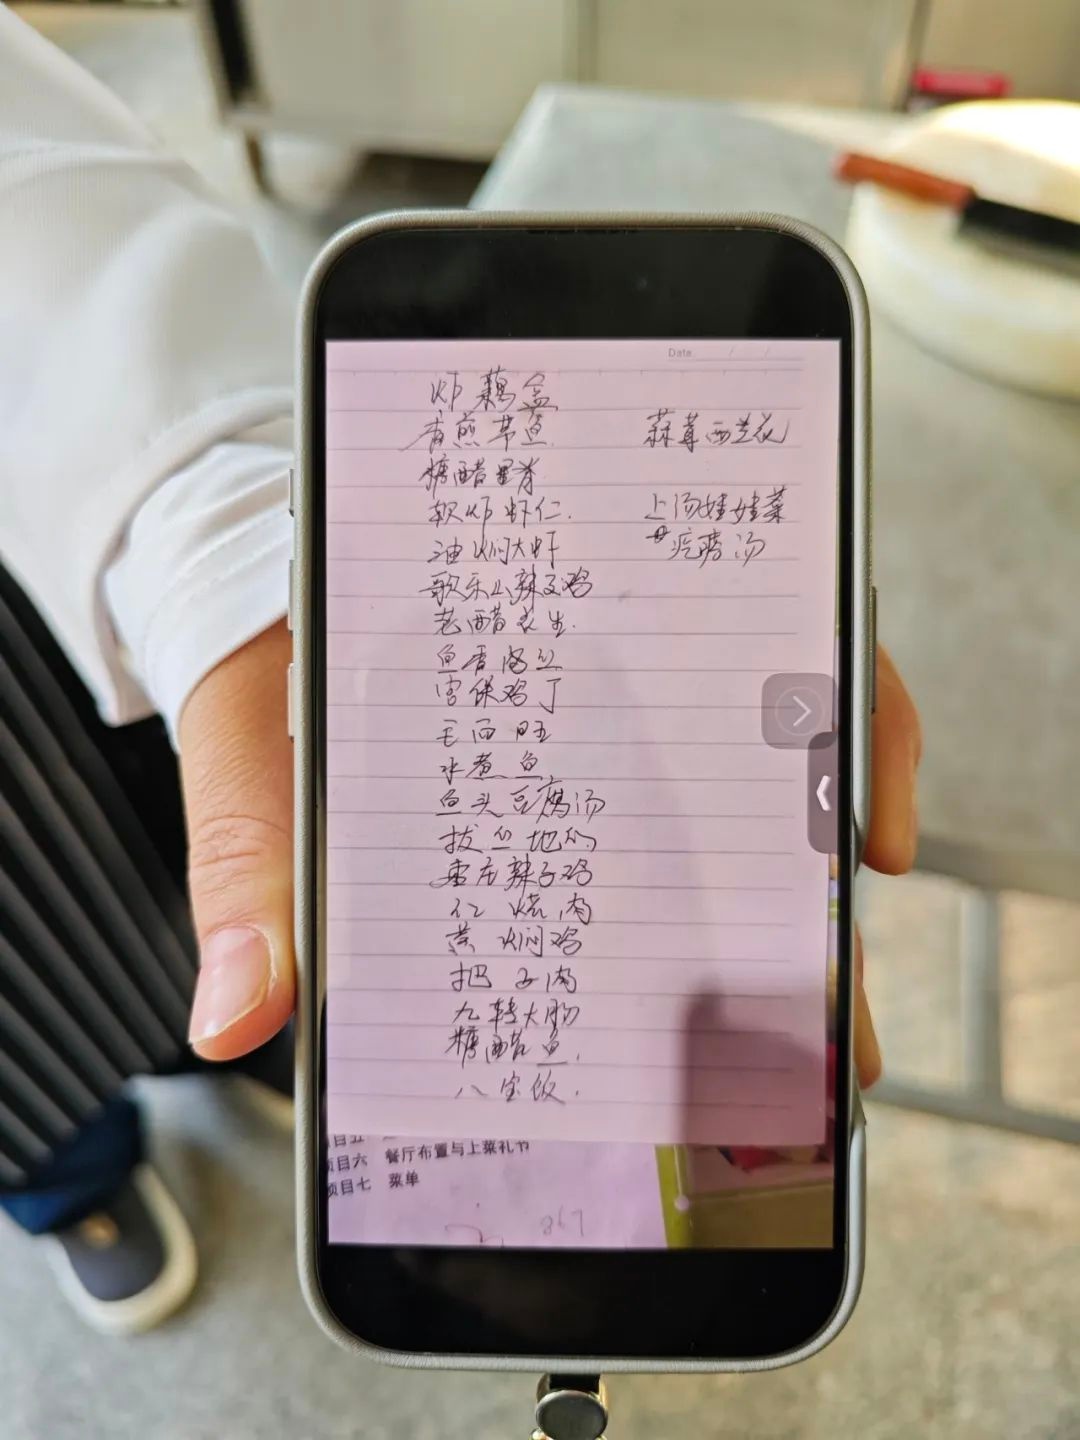 Date / /
炸藕盒
香煎带鱼 蒜茸西兰花
糖醋里脊
软炸虾仁. 上汤娃娃菜
油焖大虾 疙瘩汤
歌乐山辣子鸡
老醋花生.
鱼香肉丝
宫保鸡丁
毛血旺
水煮鱼
鱼头豆腐汤
拔丝地瓜
枣庄辣子鸡
红烧肉
黄焖鸡
把子肉
九转大肠
糖醋鱼.
八宝饭.
项目五
项目六 餐厅布置与上菜礼节
项目七 菜单
867